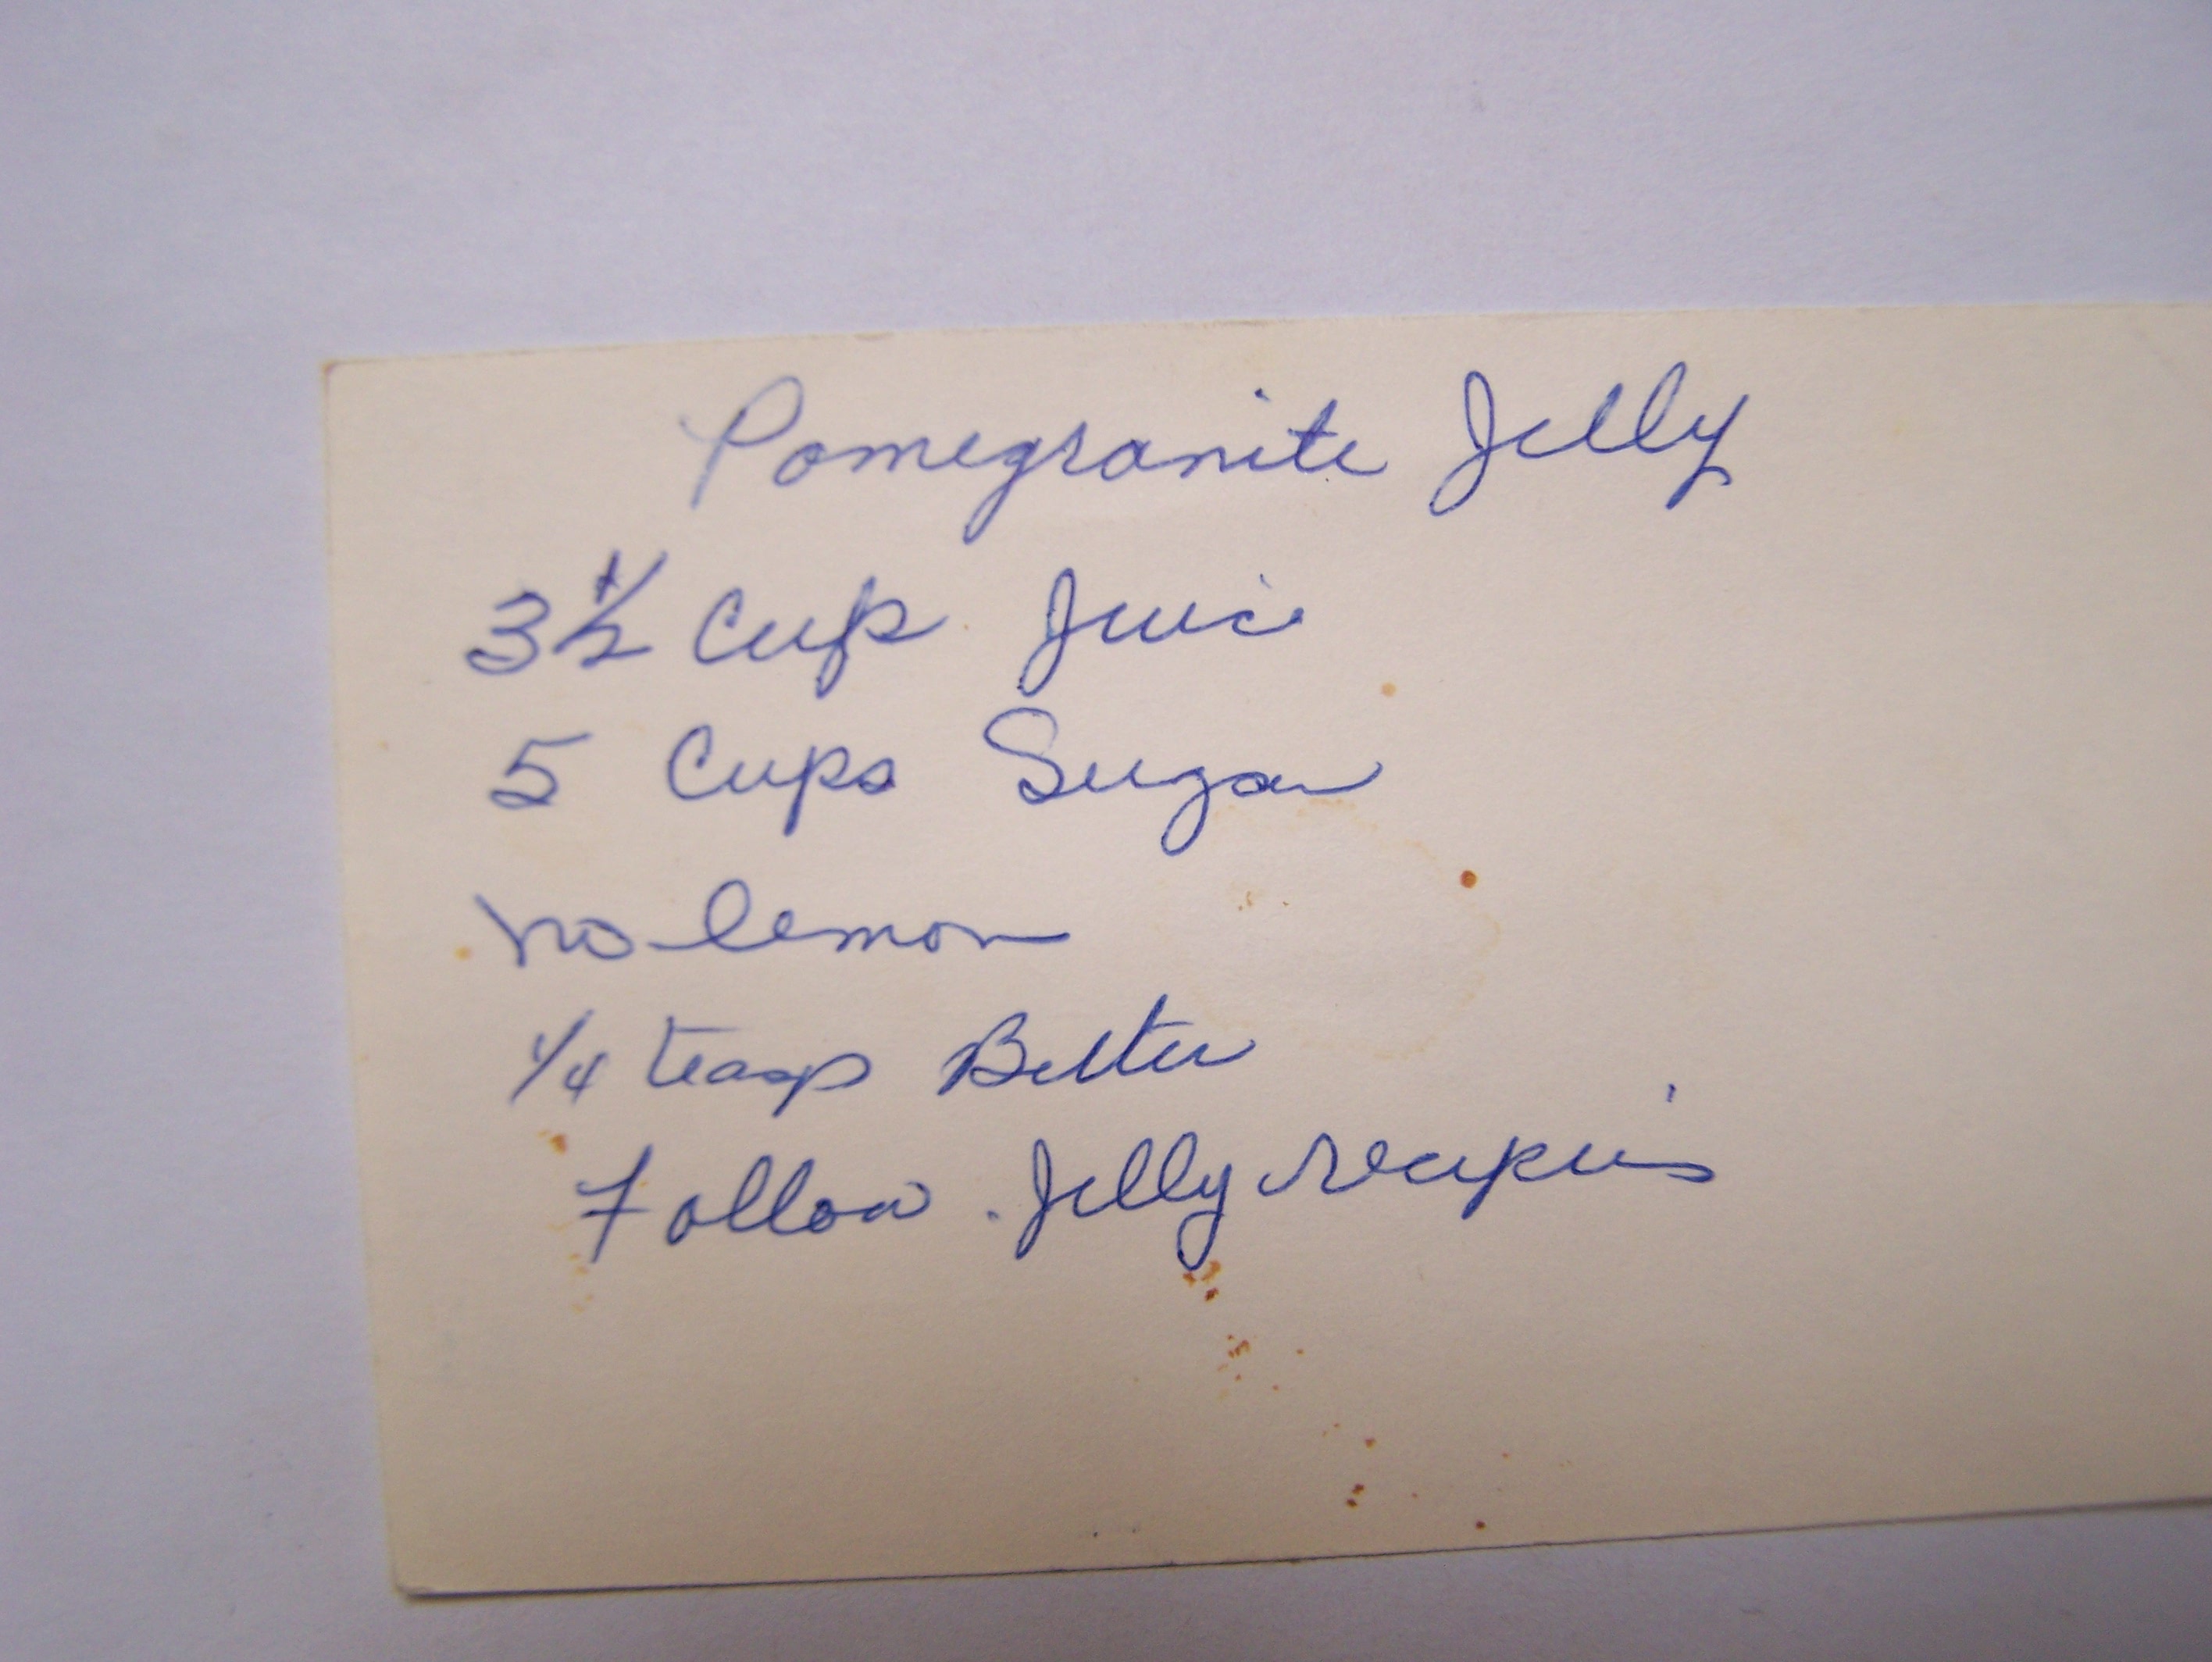 Pomegranite Jelly
3 1/2 Cup Juice
5 Cups Sugar
no lemon
1/4 teasp Butter
Follow Jelly recipies